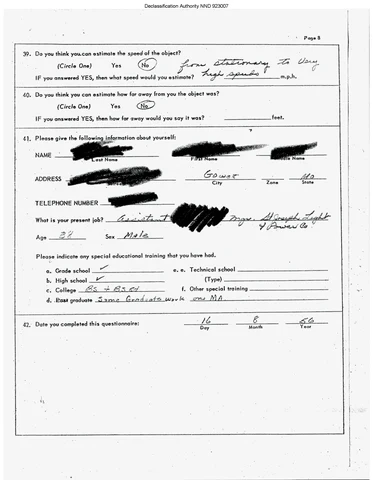 Declassification Authority NND 923007
Page 8
39. Do you think you can estimate the speed of the object?
(Circle One) Yes No from stationary to very
IF you answered YES, then what speed would you estimate? high speeds m.p.h.
40. Do you think you can estimate how far away from you the object was?
(Circle One) Yes No
IF you answered YES, then how far away would you say it was? feet.
41. Please give the following information about yourself:
NAME
Last Name First Name Middle Name
ADDRESS Gower Mo
City Zone State
TELEPHONE NUMBER
What is your present job? Assistant Mgr. St Joseph Light
& Power Co
Age 38 Sex Male
Please indicate any special educational training that you have had.
a. Grade school ✓ e. Technical school
b. High school ✓ (Type)
c. College BS + BS Ed f. Other special training
d. Post graduate Some Graduate work on MA
42. Date you completed this questionnaire: 16 8 66
Day Month Year